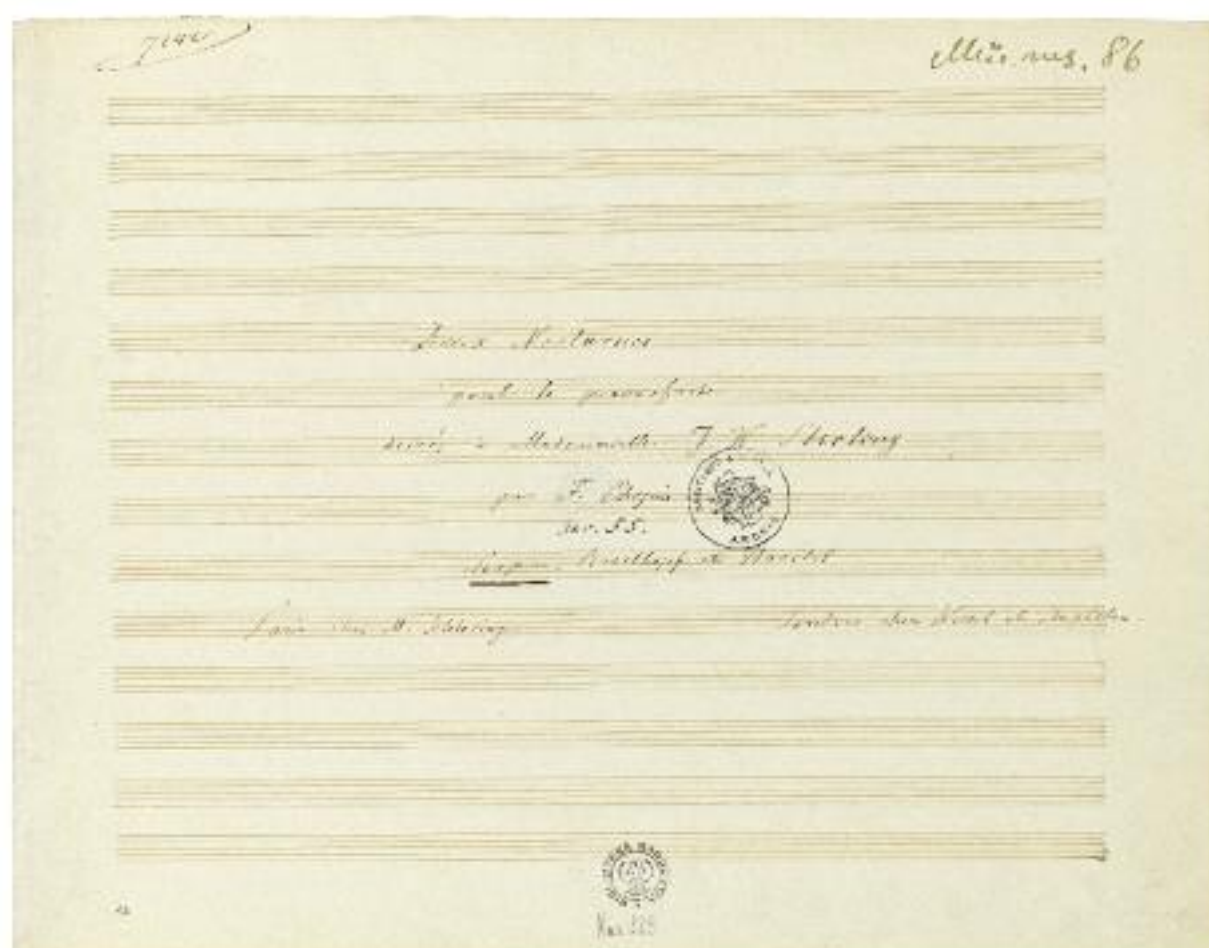 7142
Mus. ms. 86
Deux Nocturnes
pour le pianoforte
dediés à Mademoiselle J. W. Stirling
par F. Chopin
oev. 55.
Leipsic Breitkopf et Haertel
Paris chez M. Schlesing
Londres chez Wessel et Stapleton
ARGEIS
Mus 229